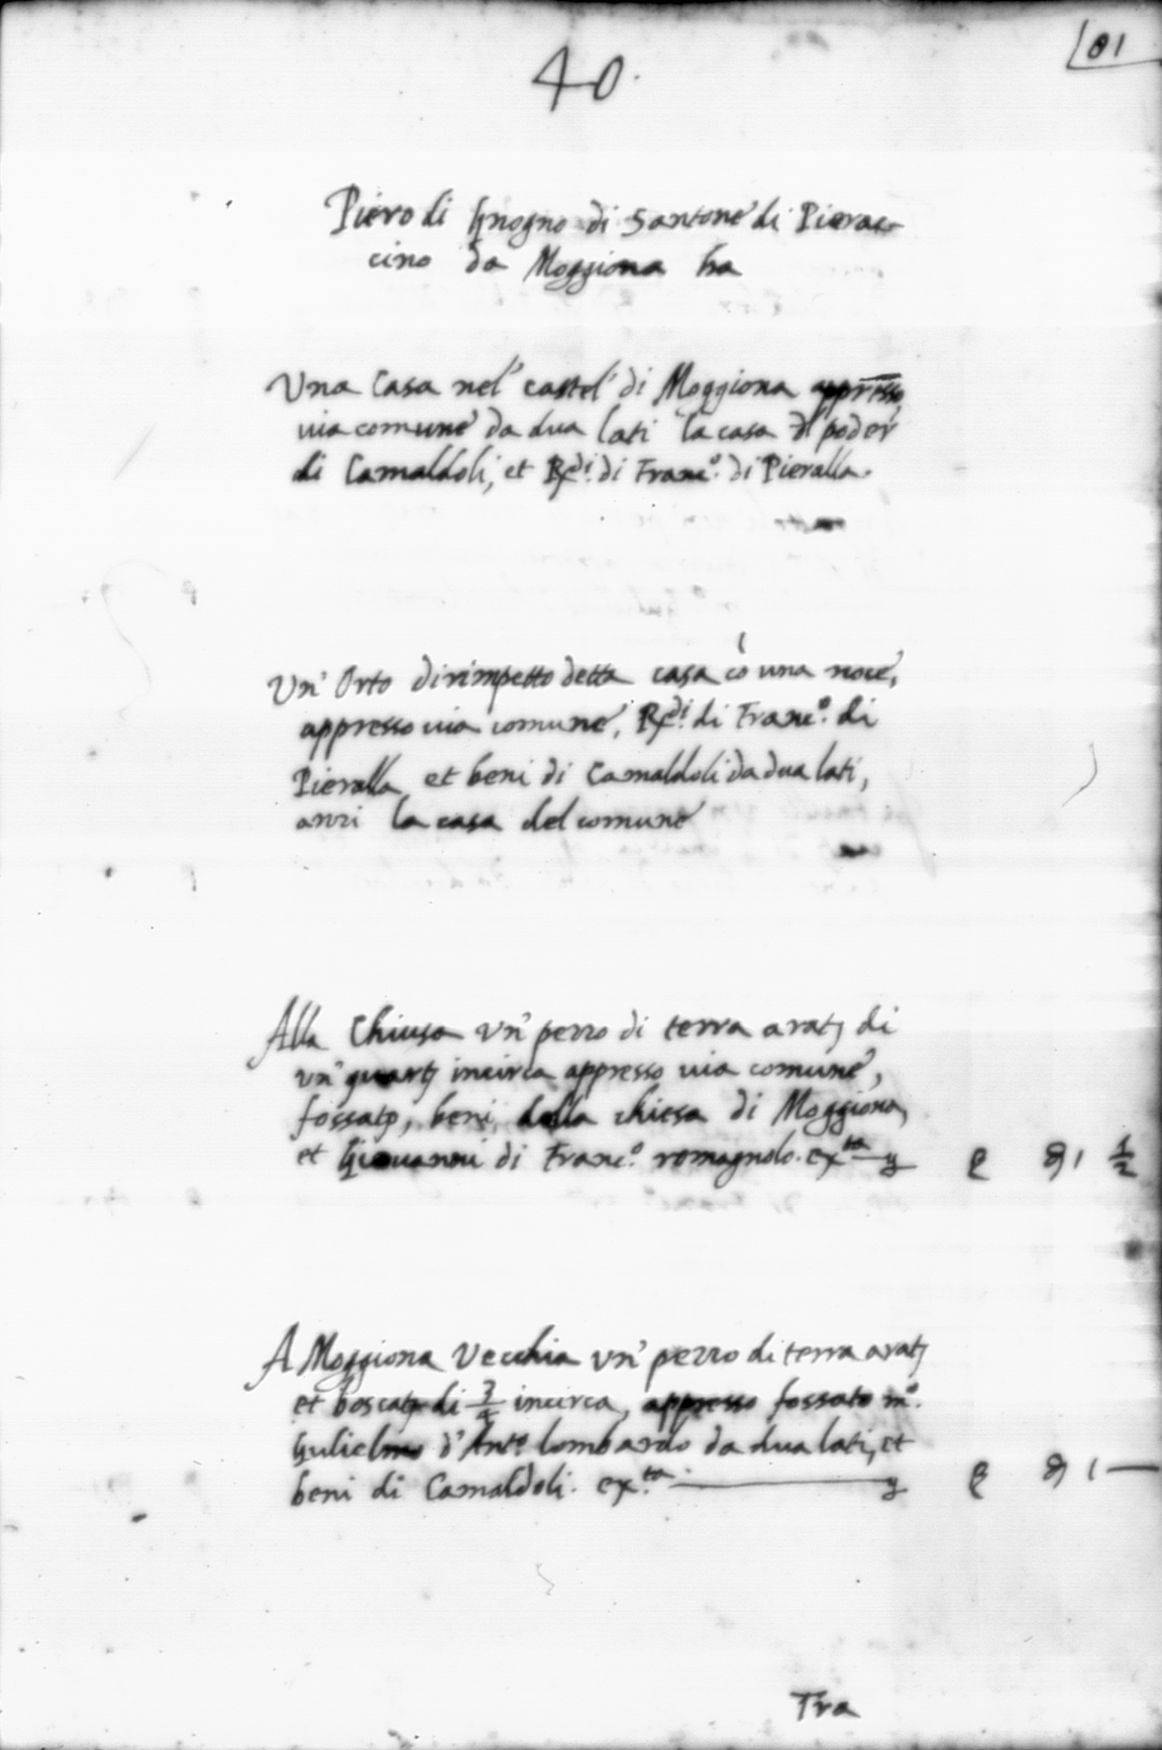 81
40.
Piero di Gnogno di Santone di Pierac-
cino da Moggiona ha
Una Casa nel castel di Moggiona appresso,
via comune da dua lati la casa d poder
di Camaldoli, et Redi. di Franco. di Pieralla.
Un' Orto dirimpetto detta casa cò una noce,
appresso via comune, Redi. di Franco. di
Pieralla et beni di Camaldoli da dua lati,
anzi la casa del comune
Alla Chiusa un' pezzo di terra arat. di
un' quart. incirca appresso via comune,
fossato, beni della chiesa di Moggiona,
et Giovanni di Franco. romagnolo. exta 1/2
A Moggiona Vecchia un' pezzo di terra arat.
et boscat. di incirca, appresso fossato mo.
Gulielmo d'Anto. lombardo da dua lati, et
beni di Camaldoli. exta.
Tra